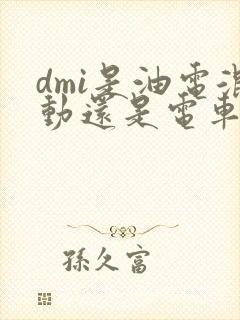 dmi是油電混
動還是電車
孫久富